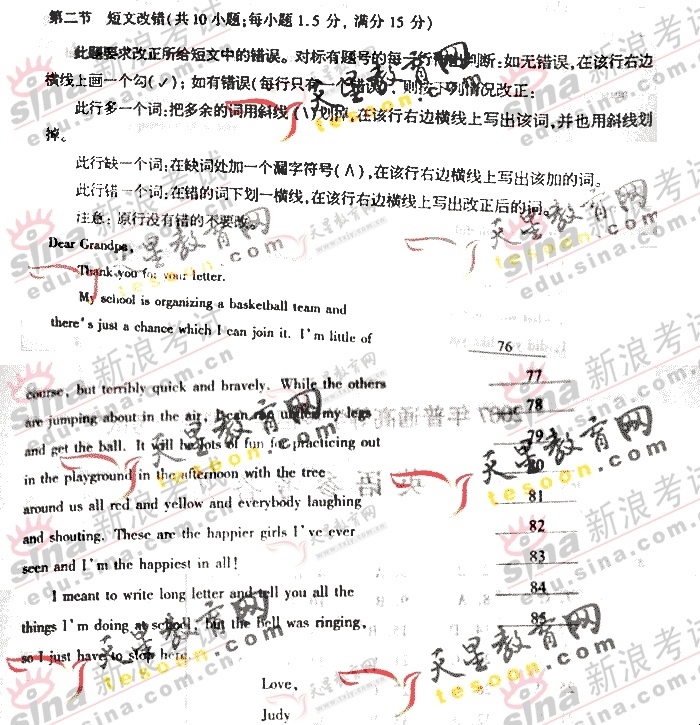 第二节 短文改错(共10小题;每小题1.5分,满分15分)
此题要求改正所给短文中的错误。对标有题号的每一行 判断:如无错误,在该行右边
横线上画一个勾(✓);如有错误(每行只有一个错误),则按下列情况改正:
此行多一个词:把多余的词用斜线(\)划掉,在该行右边横线上写出该词,并也用斜线划
掉。
此行缺一个词:在缺词处加一个漏字符号(∧),在该行右边横线上写出该加的词。
此行错一个词:在错的词下划一横线,在该行右边横线上写出改正后的词。
注意:原行没有错的不要改。
Dear Grandpa,
Thank you for your letter.
My school is organizing a basketball team and
there's just a chance which I can join it. I'm little of 76
course, but terribly quick and bravely. While the others 77
are jumping about in the air, I can run under my legs 78
and get the ball. It will be lots of fun for practicing out 79
in the playground in the afternoon with the tree 80
around us all red and yellow and everybody laughing 81
and shouting. These are the happier girls I've ever 82
seen and I'm the happiest in all! 83
I meant to write long letter and tell you all the 84
things I'm doing at school, but the bell was ringing, 85
so I just have to stop here.
Love,
Judy
新浪考试
sina
edu.sina.com.cn
天星教育网
tesoon.com